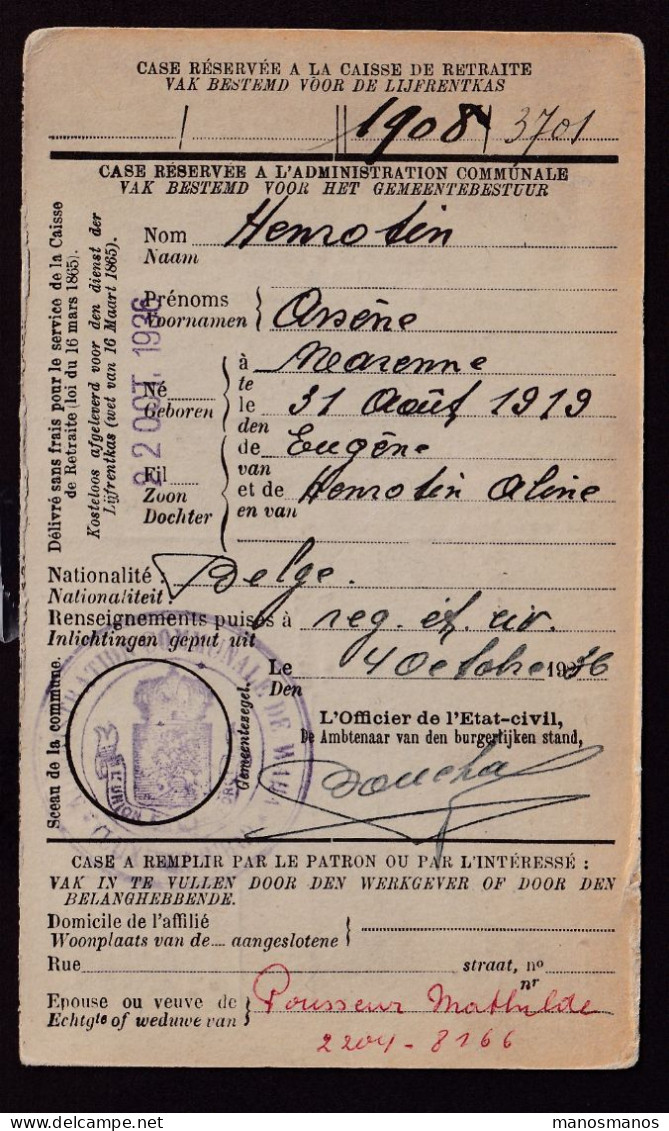 CASE RÉSERVÉE A LA CAISSE DE RETRAITE
VAK BESTEMD VOOR DE LIJFRENTKAS
1908 3701
CASE RÉSERVÉE A L'ADMINISTRATION COMMUNALE
VAK BESTEMD VOOR HET GEMEENTEBESTUUR
Délivré sans frais pour le service de la Caisse
de Retraite (loi du 16 mars 1865).
Kosteloos afgeleverd voor den dienst der
Lijfrentkas (wet van 16 Maart 1865).
OCT. 1936
Nom Henrotin
Naam
Prénoms Arsène
Voornamen
Né à Marenne
Geboren te
le 31 Août 1919
den
Fil de Eugène
Zoon van
Dochter et de Henrotin Aline
en van
Nationalité : Belge.
Nationaliteit :
Renseignements puisés à reg. ét. civ.
Inlichtingen geput uit
Le 4 Octobre 1936
Den
Sceau de la commune.
Gemeentezegel.
L'Officier de l'Etat-civil,
De Ambtenaar van den burgerlijken stand,
CASE A REMPLIR PAR LE PATRON OU PAR L'INTÉRESSÉ :
VAK IN TE VULLEN DOOR DEN WERKGEVER OF DOOR DEN
BELANGHEBBENDE.
Domicile de l'affilié
Woonplaats van de.... aangeslotene
Rue straat, no
nr
Epouse ou veuve de Pousseur Mathilde
Echtgte of weduwe van
2204-8166
manosmanos